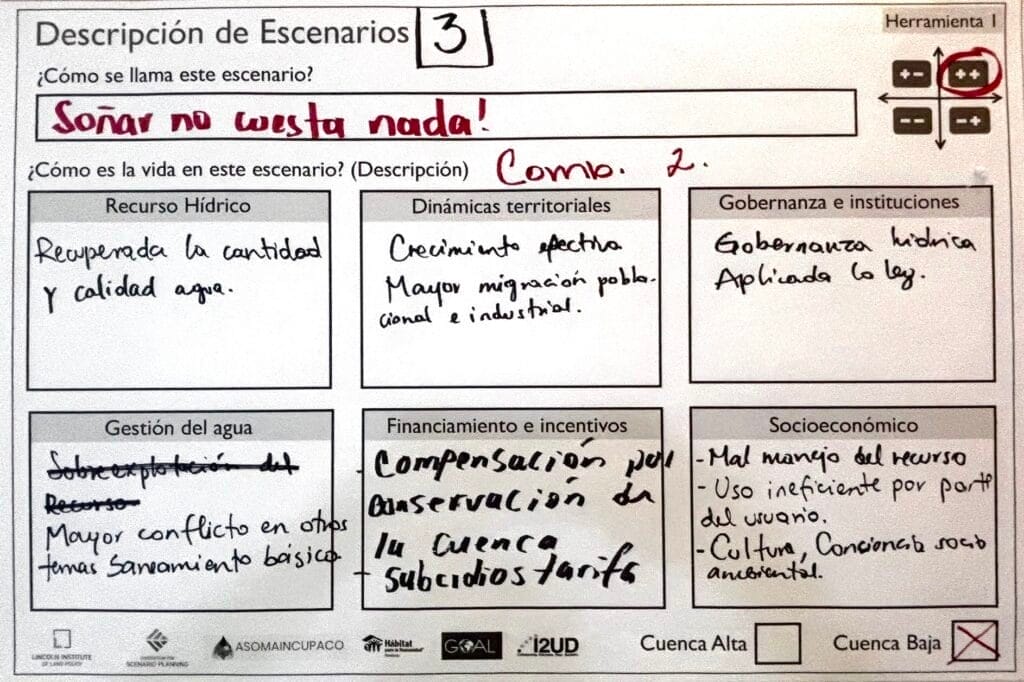 Descripción de Escenarios 3
Herramienta 1
¿Cómo se llama este escenario?
+- ++
-- -+
Soñar no cuesta nada!
¿Cómo es la vida en este escenario? (Descripción) Comb. 2.
Recurso Hídrico
Recuperada la cantidad
y calidad agua.
Dinámicas territoriales
Crecimiento efectivo
Mayor migración pobla-
cional e industrial.
Gobernanza e instituciones
Gobernanza hídrica
Aplicada la ley.
Gestión del agua
Sobreexplotación del
Recurso
Mayor conflicto en otros
temas Saneamiento básico
Financiamiento e incentivos
- Compensación por
conservación de
la cuenca
- subcidios tarifa
Socioeconómico
- Mal manejo del recurso
- Uso ineficiente por parte
del usuario.
- Cultura, Conciencia socio
ambiental.
LINCOLN INSTITUTE
OF LAND POLICY
CONSORTIUM FOR
SCENARIO PLANNING
ASOMAINCUPACO
Hábitat
para la Humanidad
GOAL
I2UD
Cuenca Alta
Cuenca Baja X